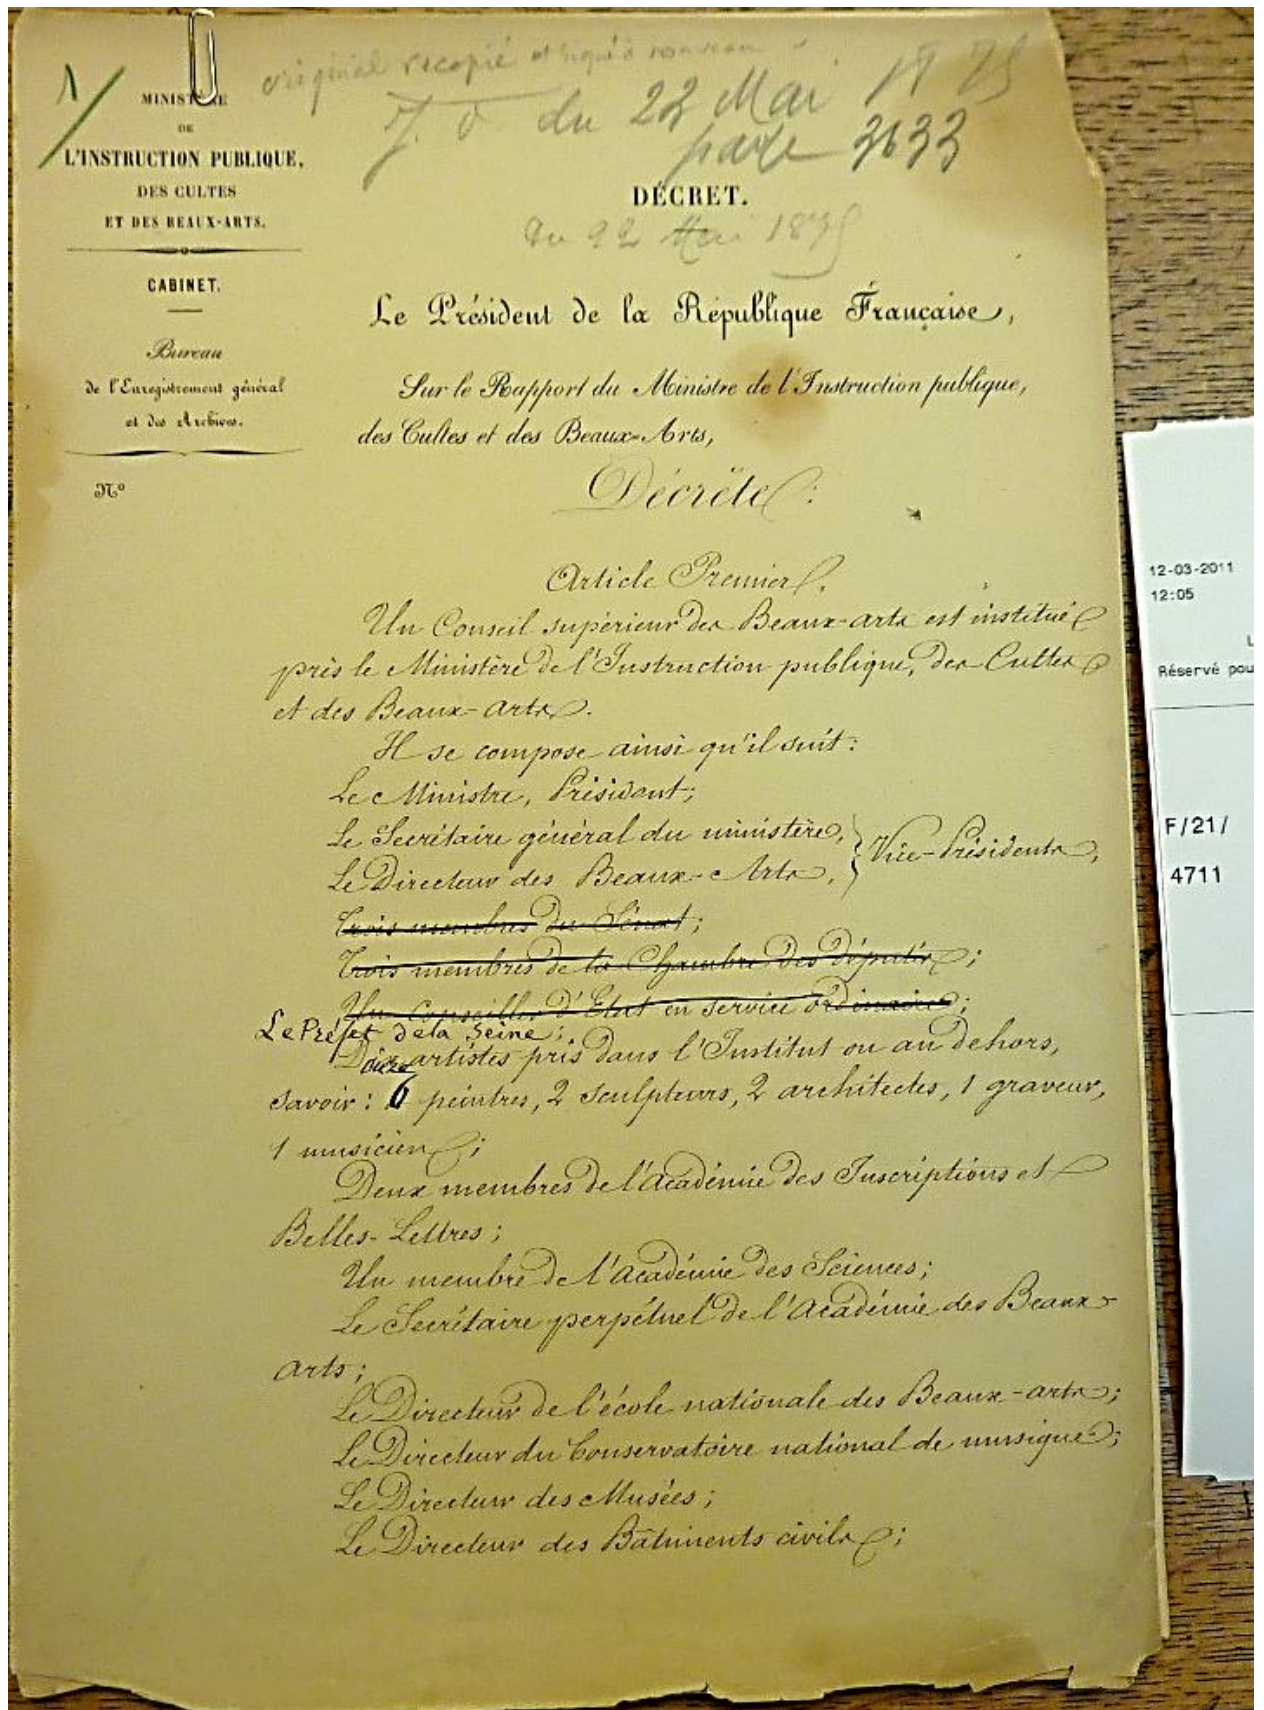 1/
original recopié et
J. O. du 22 Mai 1875
page 3633
MINISTÈRE
DE
L'INSTRUCTION PUBLIQUE,
DES CULTES
ET DES BEAUX-ARTS.
CABINET.
Bureau
de l'Enregistrement général
et des Archives.
N°
DÉCRET.
Du 22 Mai 1875
Le Président de la République Française,
Sur le Rapport du Ministre de l'Instruction publique,
des Cultes et des Beaux-Arts,
Décrète :
Article Premier.
Un Conseil supérieur des Beaux-arts est institué
près le Ministère de l'Instruction publique, des Cultes
et des Beaux-arts.
Il se compose ainsi qu'il suit :
Le Ministre, Président ;
Le Secrétaire général du ministère,
Le Directeur des Beaux-Arts, } Vice-Présidents,
Trois membres du Sénat ;
Trois membres de la Chambre des députés ;
Un Conseiller d'Etat en service ordinaire ;
Le Préfet de la Seine ;
artistes pris dans l'Institut ou au dehors,
savoir : 6 peintres, 2 sculpteurs, 2 architectes, 1 graveur,
1 musicien ;
Deux membres de l'académie des Inscriptions et
Belles-Lettres ;
Un membre de l'académie des Sciences ;
Le Secrétaire perpétuel de l'académie des Beaux-
arts ;
Le Directeur de l'école nationale des Beaux-arts ;
Le Directeur du Conservatoire national de musique ;
Le Directeur des Musées ;
Le Directeur des Bâtiments civils ;
12-03-2011
12:05
L
Réservé pou
F/21/
4711